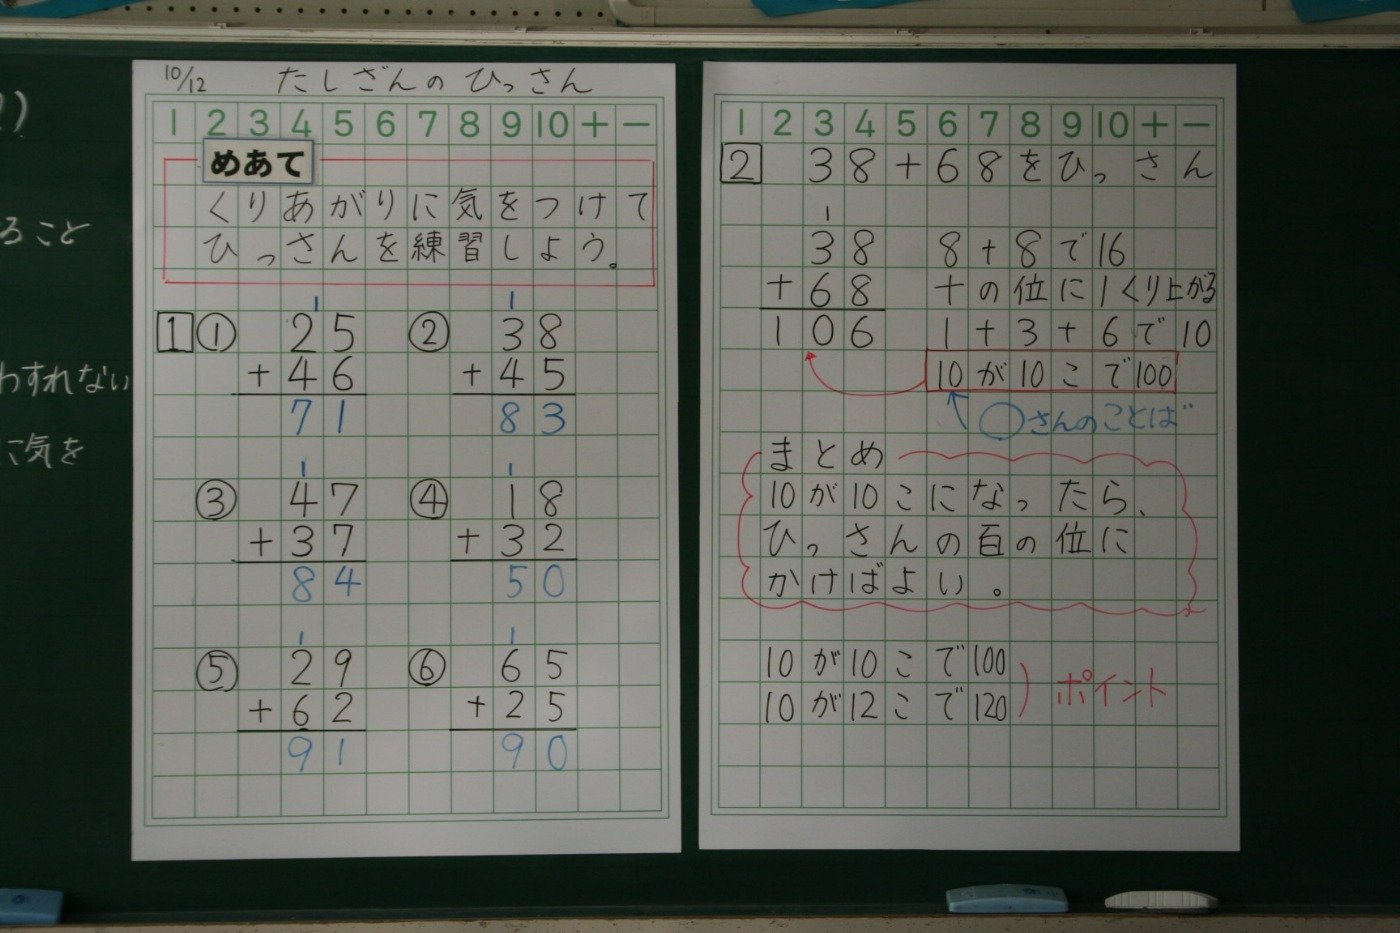 ること
わすれない
に気を
10/12 たしざんのひっさん
1 2 3 4 5 6 7 8 9 10 + −
めあて
くりあがりに気をつけて
ひっさんを練習しよう。
1 1
1 ① 25 ② 38
+46 +45
71 83
1 1
③ 47 ④ 18
+37 +32
84 50
1 1
⑤ 29 ⑥ 65
+62 +25
91 90
1 2 3 4 5 6 7 8 9 10 + −
2 38+68をひっさん
1
38 8+8で16
+68 十の位に1くり上がる
106 1+3+6で10
10が10こで100
○さんのことば
まとめ
10が10こになったら、
ひっさんの百の位に
かけばよい。
10が10こで100
10が12こで120
ポイント